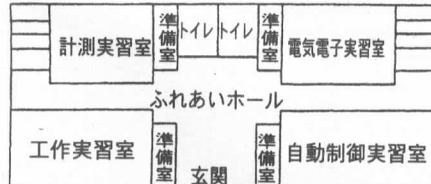 計測実習室
準備室
トイレ
トイレ
準備室
電気電子実習室
ふれあいホール
工作実習室
準備室
玄関
準備室
自動制御実習室